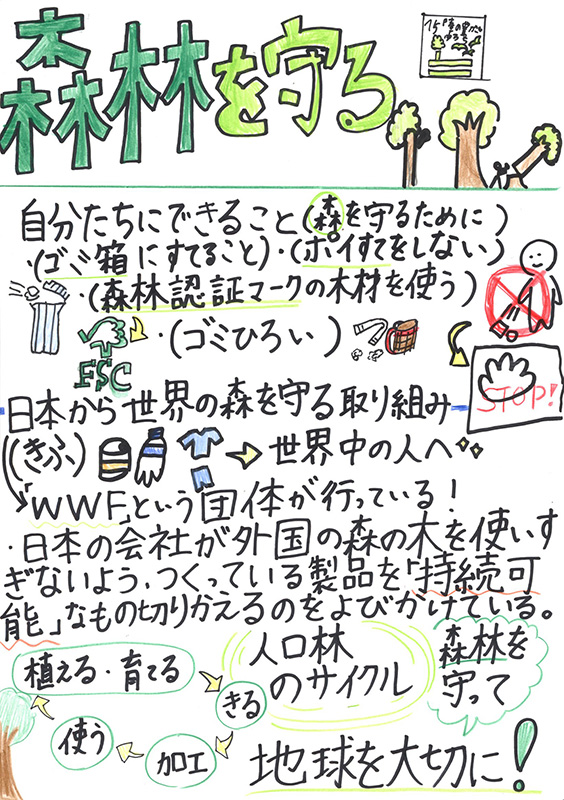 森林を守る
15「陸の豊かさも
守ろう」
自分たちにできること(森を守るために)
・(ゴミ箱にすてること)・(ポイすてをしない)
・(森林認証マークの木材を使う)
FSC
・(ゴミひろい)
STOP!
日本から世界の森を守る取り組み
(きふ)
世界中の人へ
「WWF」という団体が行っている!
・日本の会社が外国の森の木を使いす
ぎないよう、つくっている製品を「持続可
能」なもの切りかえるのをよびかけている。
人口林
のサイクル
植える・育てる
きる
加工
使う
森林を
守って
地球を大切に!